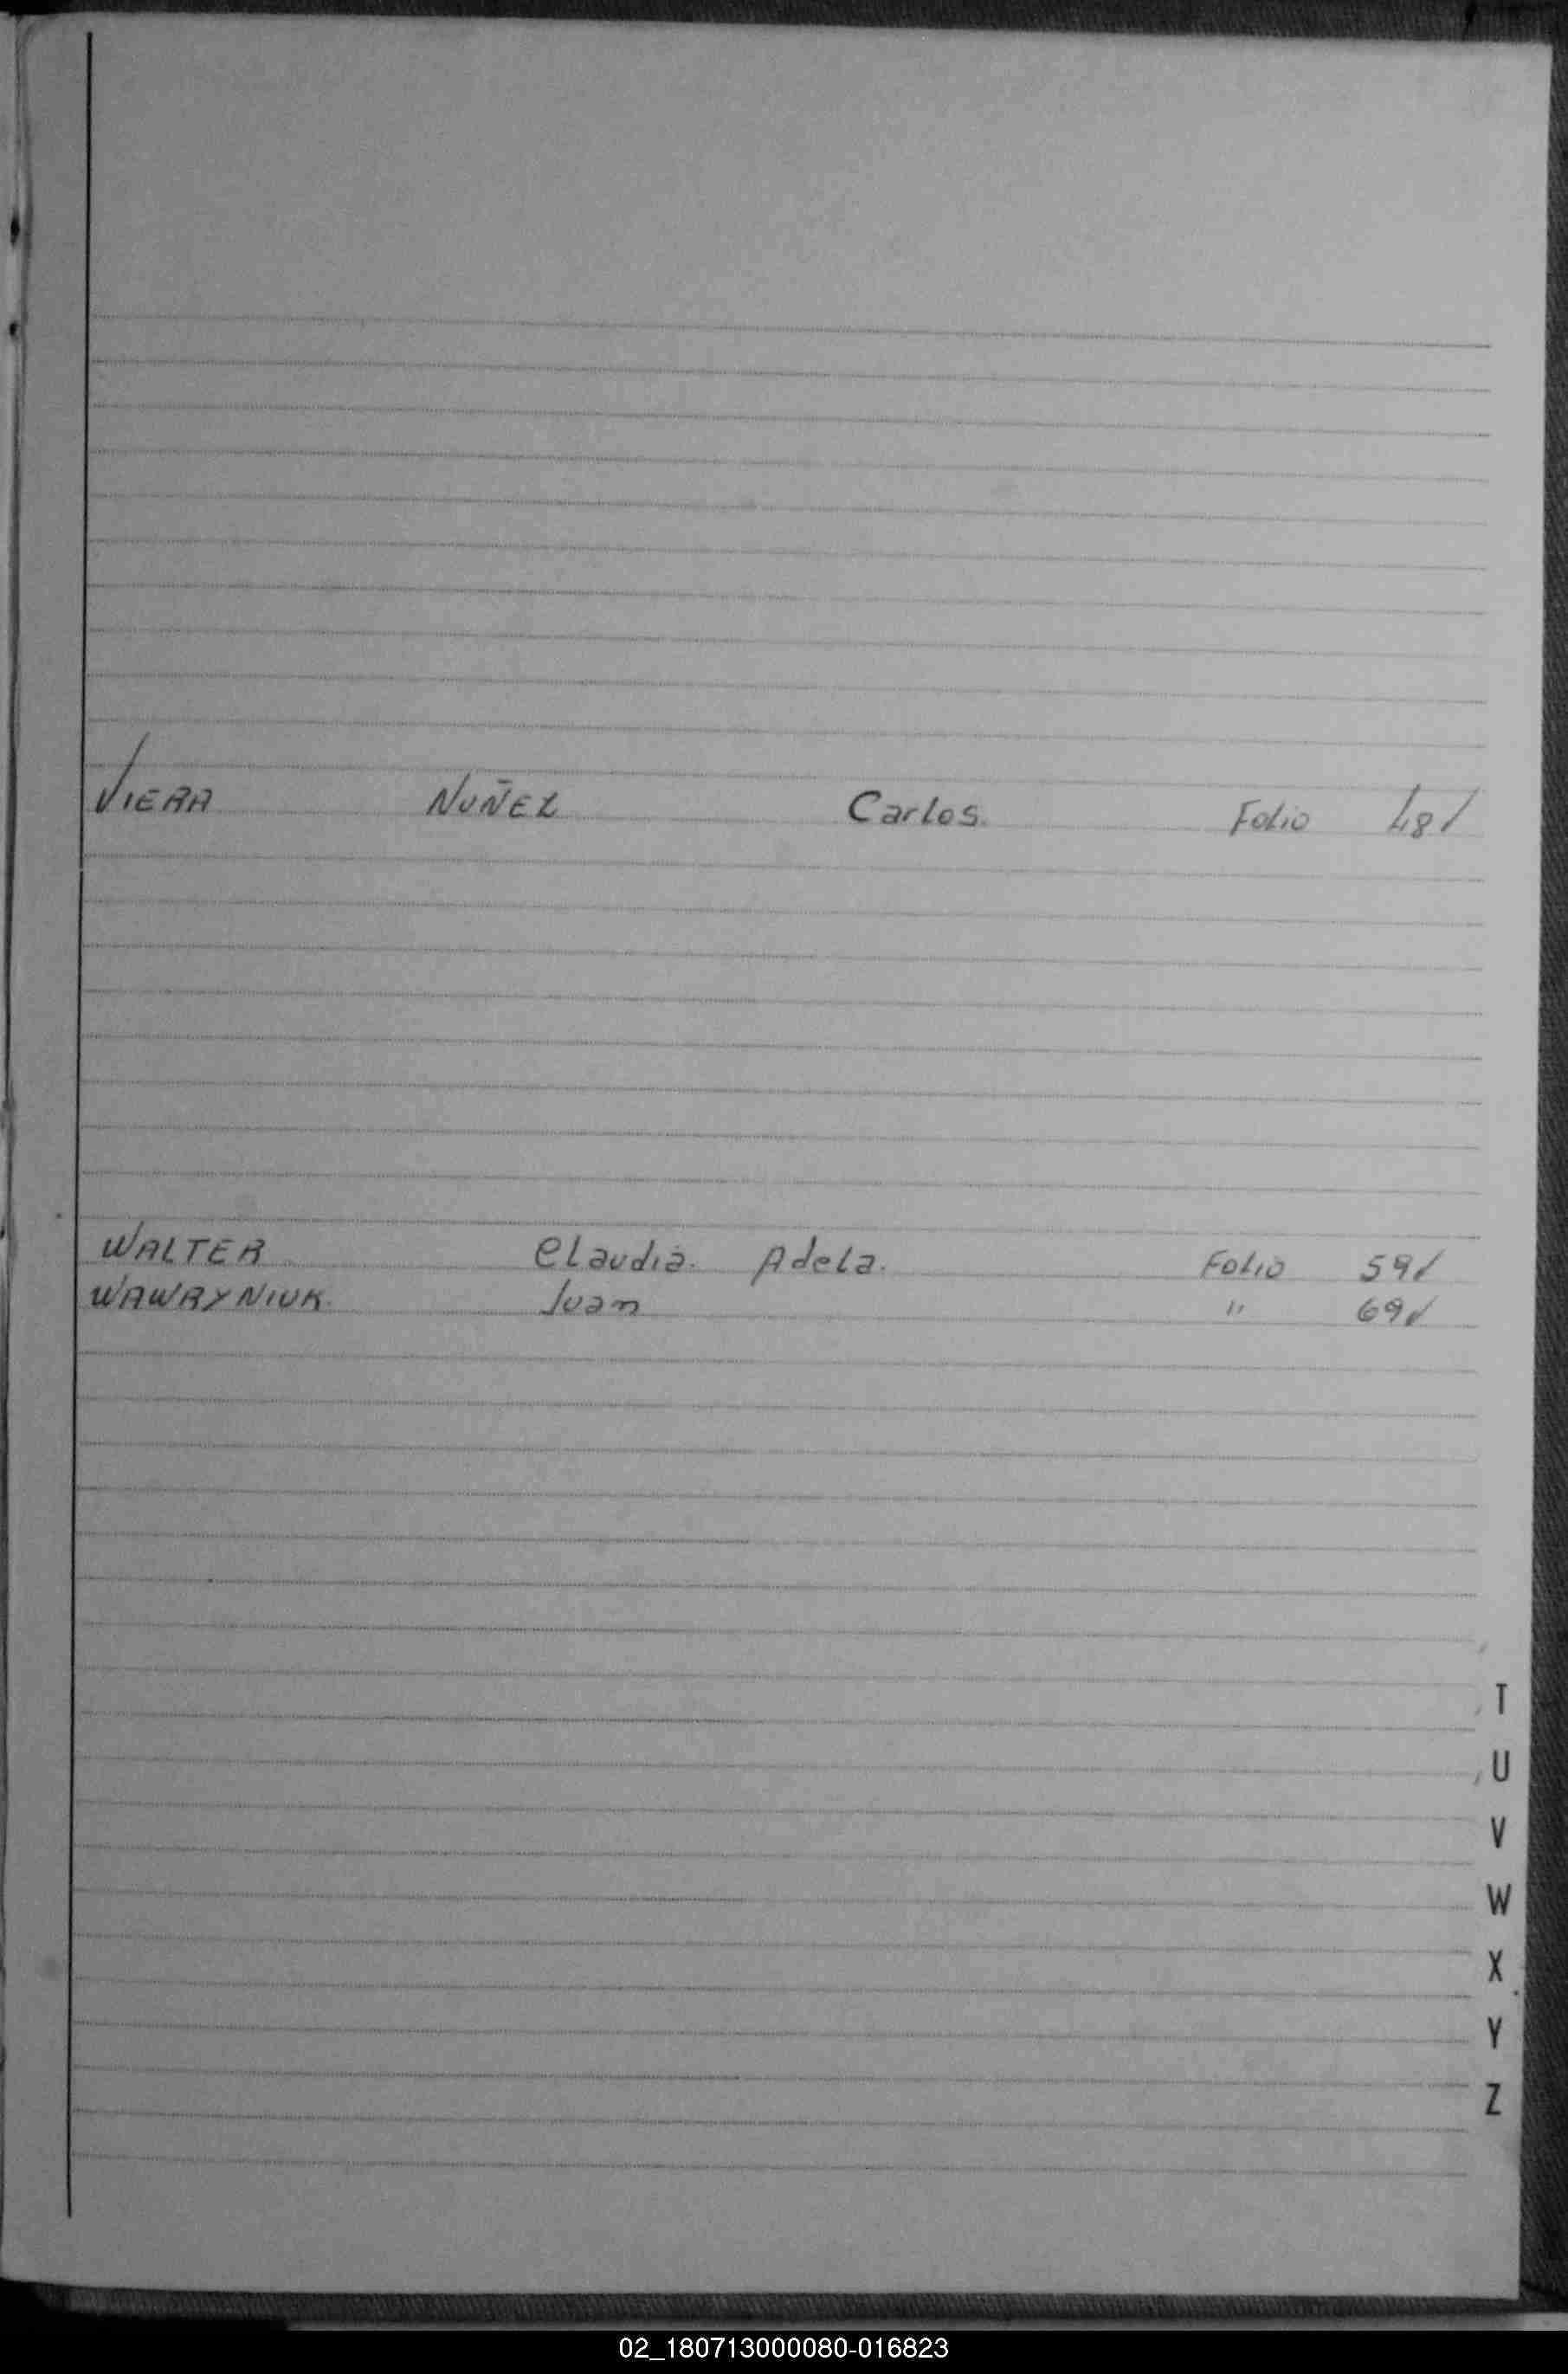 VIERA NUÑEZ Carlos. Folio 48✓
WALTER Claudia. Adela. Folio 59✓
WAWRYNIUK. Juan " 69✓
T
U
V
W
X
Y
Z
02_180713000080-016823